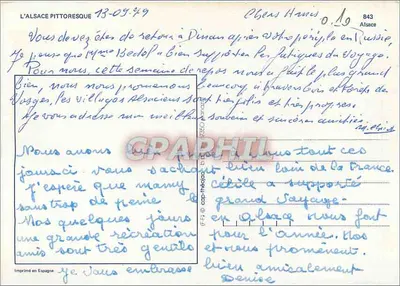 L'ALSACE PITTORESQUE
13-09-79
Chers Amis
0.10
843
Alsace
Vous devez être de retour à Dinan après votre périple en Russie,
bien supporté les fatigues du voyage.
Pour nous cette semaine de repos nous a fait le plus grand
bien, nous nous promenons beaucoup à travers bois et forêts des
Vosges. Les villages alsaciens sont très jolis et très propres
Je vous adresse mon meilleur souvenir et sincères amitiés
CPAPHIL
Nous avons
vous tout ces
jours ci vous sachant bien loin de la France
j'espère que mamy
a supporté
sans trop de peine le
grand voyage
Nos quelques jours
en Alsace nous font
une grande récréation
pour l'Année. Nos
amis sont très gentils
et nous promènent.
je vous embrasse
bien amicalement
Denise
Imprimé en Espagne